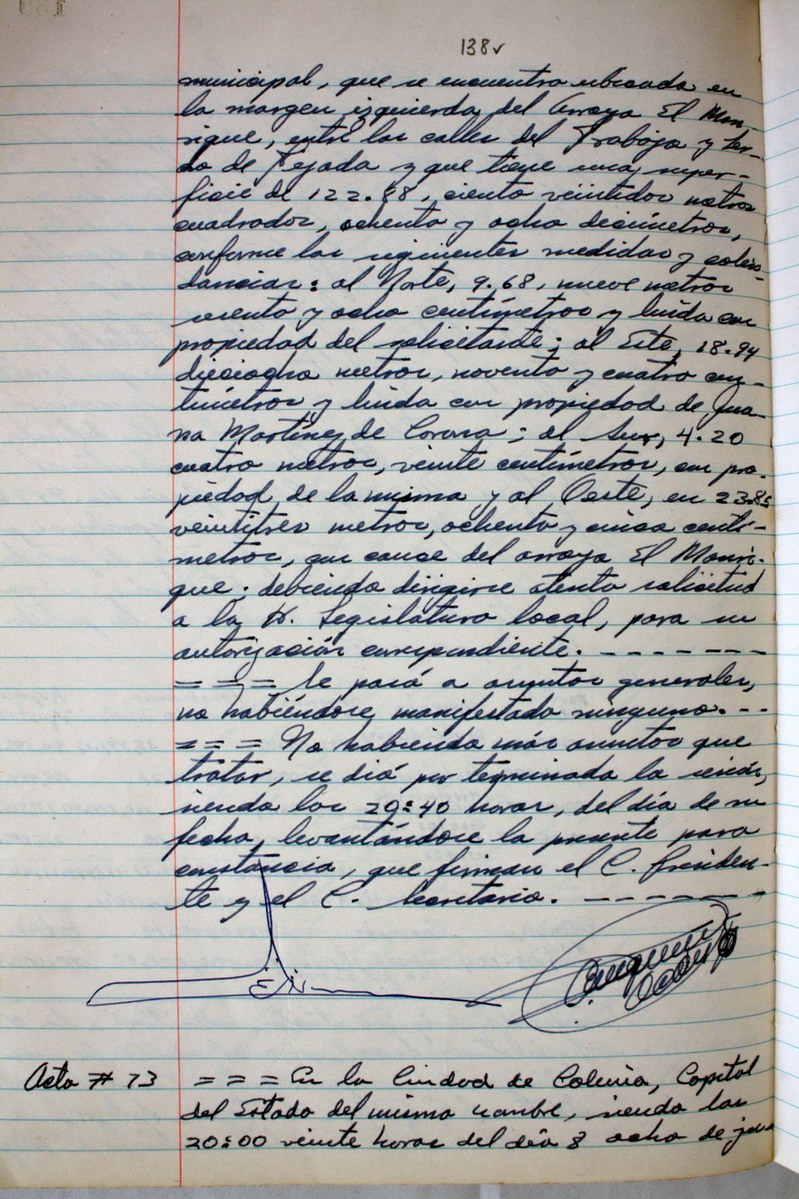 138v
municipal, que se encuentra ubicada en
la margen izquierda del arroyo El Man-
rique, entre las calles del Trabajo y Ler-
do de Tejada y que tiene una super-
ficie de 122.88, ciento veintidos metros
cuadrados, ochenta y ocho decímetros,
conforme las siguientes medidas y colin-
dancias: al Norte, 9.68, nueve metros
sesenta y ocho centímetros y linda con
propiedad del solicitante; al Este, 18.94
dieciocho metros, noventa y cuatro cen-
tímetros y linda con propiedad de Jua-
na Martínez de Corona; al Sur, 4.20
cuatro metros, veinte centímetros, con pro-
piedad de la misma y al Oeste, en 23.85
veintitres metros, ochenta y cinco centí-
metros, con cause del arroyo El Manri-
que; debiendo dirigirse atenta solicitud
a la H. Legislatura local, para su
autorización correspondiente. - - - - - - -
= = = Se pasó a asuntos generales,
no habiéndose manifestado ninguno. - -
= = = No habiendo más asuntos que
tratar, se dió por terminada la sesión,
siendo las 20:40 horas, del día de su
fecha, levantándose la presente para
constancia, que firman el C. Presiden-
te y el C. Secretario. - - - - - - -
Acta # 73 = = = En la Ciudad de Colima, Capital
del Estado del mismo nombre, siendo las
20:00 veinte horas del día 8 ocho de